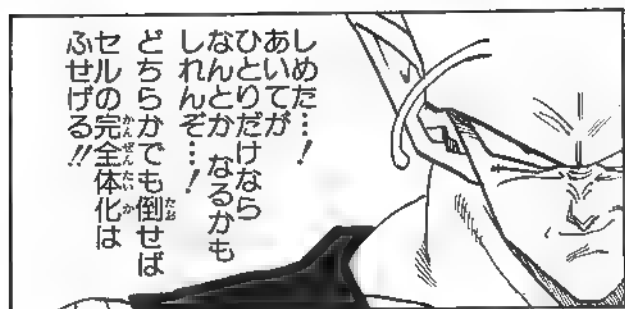 しめた…!
あいてが
ひとりだけなら
なんとか なるかも
しれんぞ…!
どちらかでも倒せば
セルの完全体化は
ふせげる!!